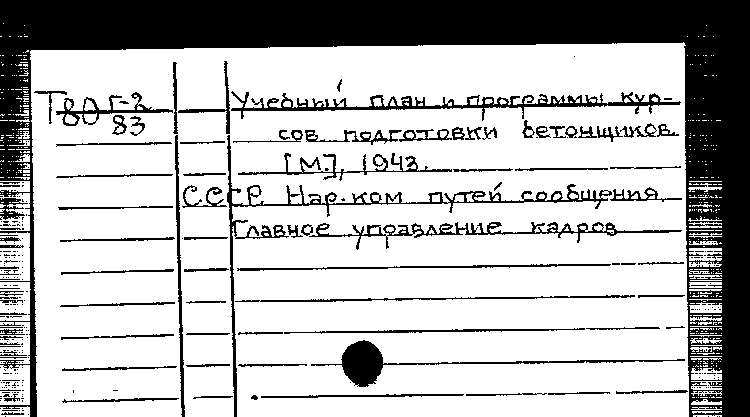 Т80 Г-2
83
Учебный план и программы кур-
сов подготовки бетонщиков.
[М.], 1943.
СССР. Нар.ком путей сообщения.
Главное управление кадров